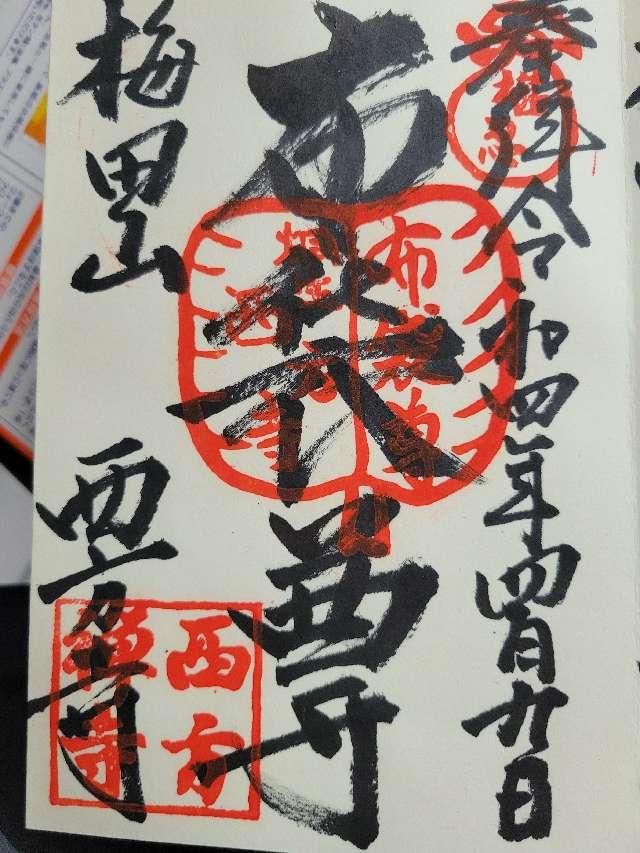 奉拝
令和四年四月九日
布袋尊
梅田山
西方寺
布袋尊
西方
禅寺